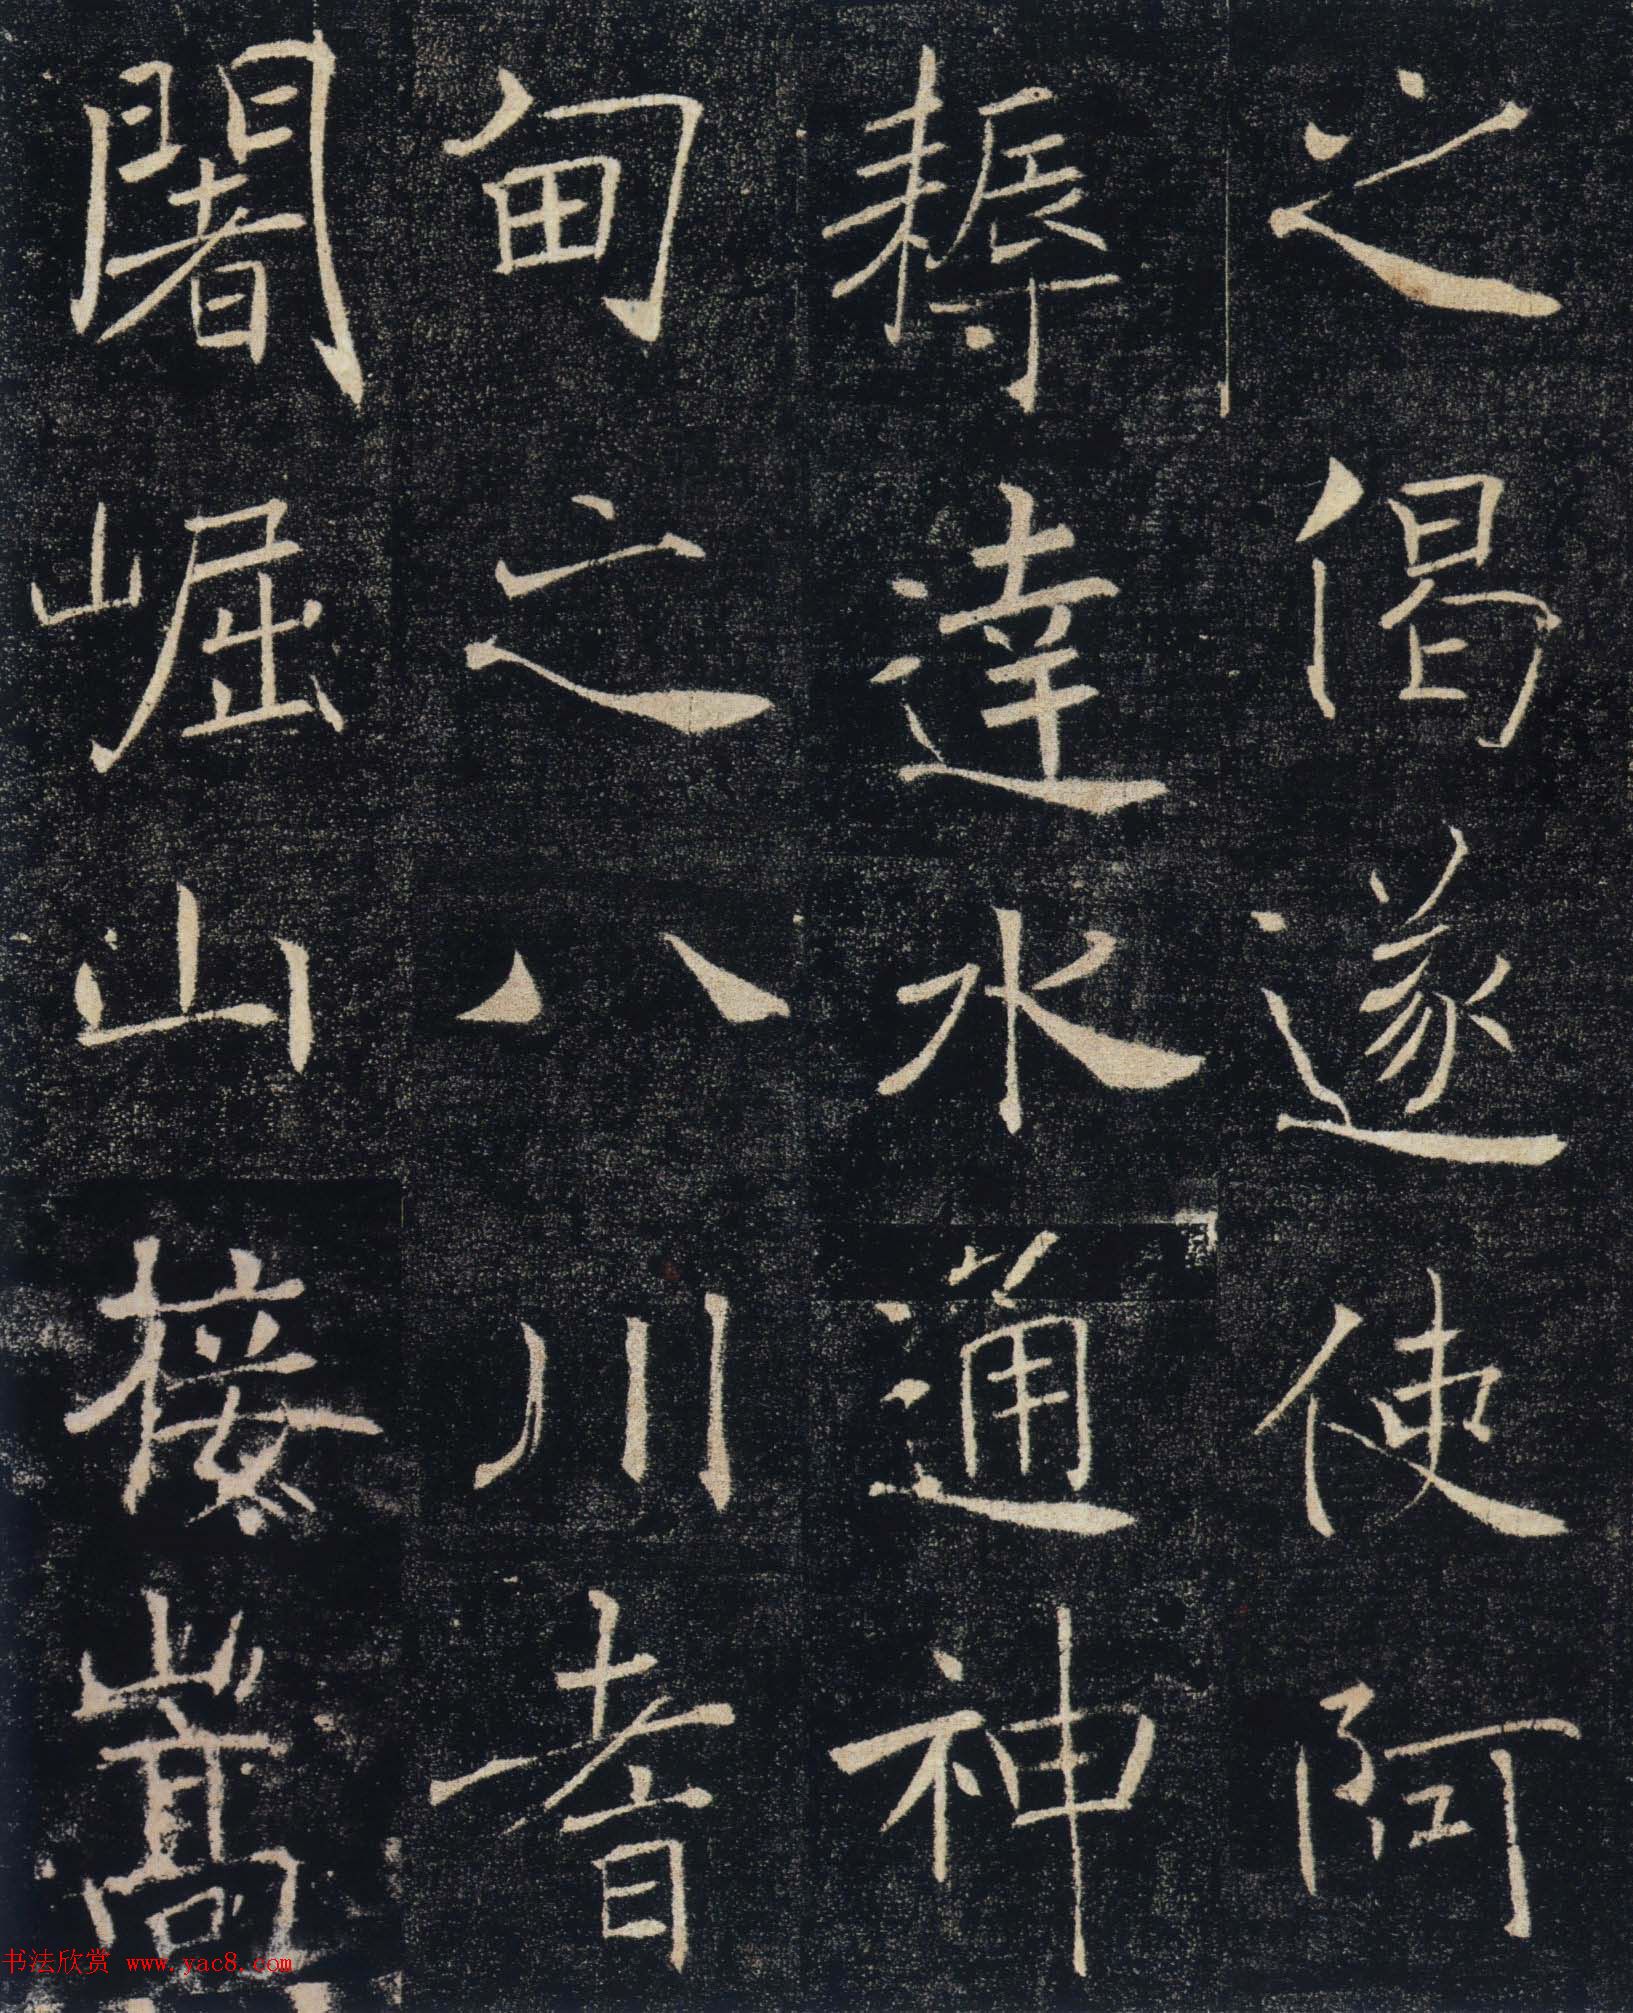 之偈遂使阿
耨達水通神
甸之八川耆
闍崛山接嵩
书法欣赏 www.yac8.com